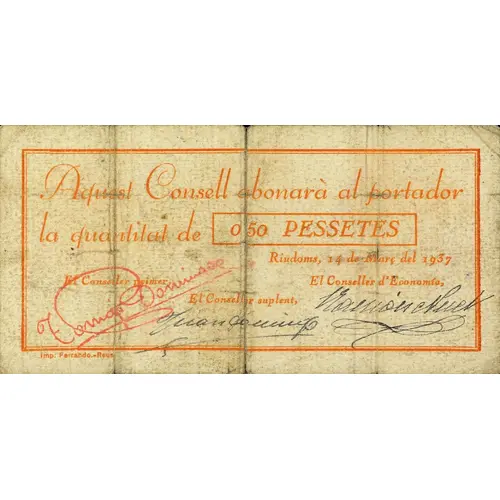 Aquest Consell abonarà al portador
la quantitat de 0'50 PESSETES
Riudoms, 14 de Març del 1937
El Conseller primer, El Conseller d'Economía,
El Conseller suplent,
Imp. Ferrando.-Reus